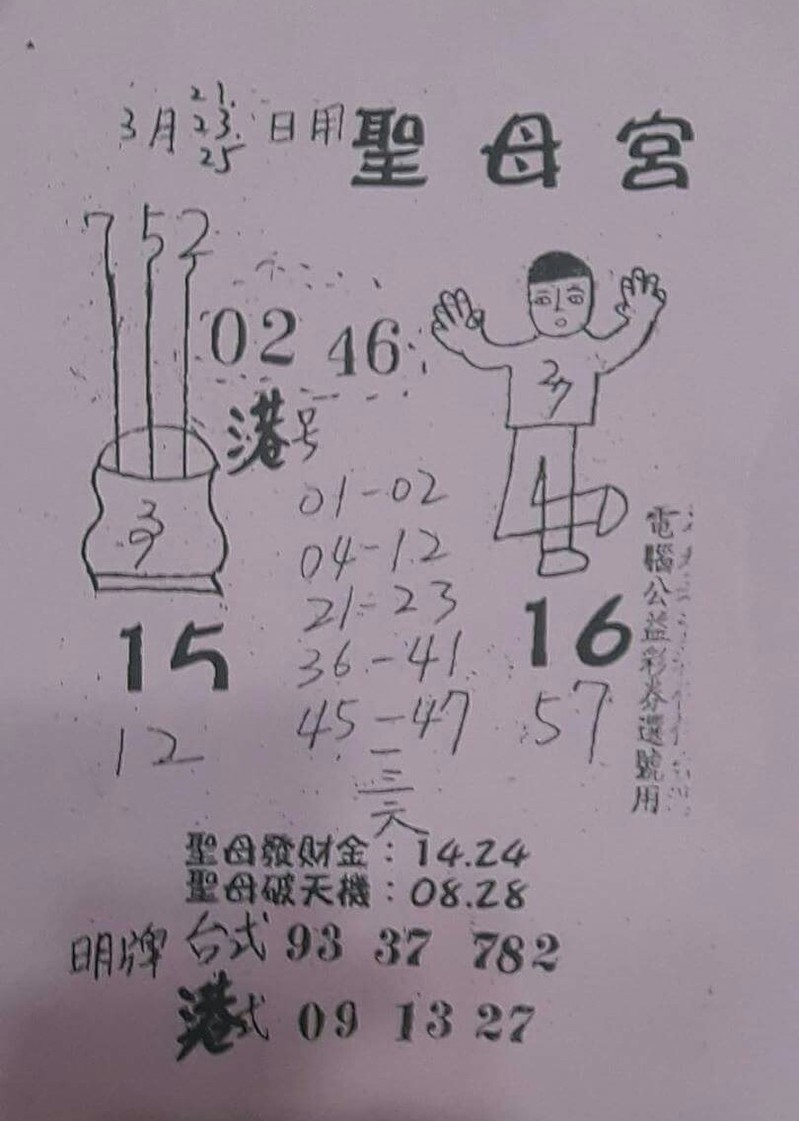 3月 21. 23. 25 日用 聖母宮
7 5 2
02 46
港号
27
1
39
01-02
04-12
21-23
36-41
45-47
15
12
16
57
一
三
六
電腦公益彩券選號用
聖母發財金：14.24
聖母破天機：08.28
明牌 台式 93 37 782
港式 09 13 27